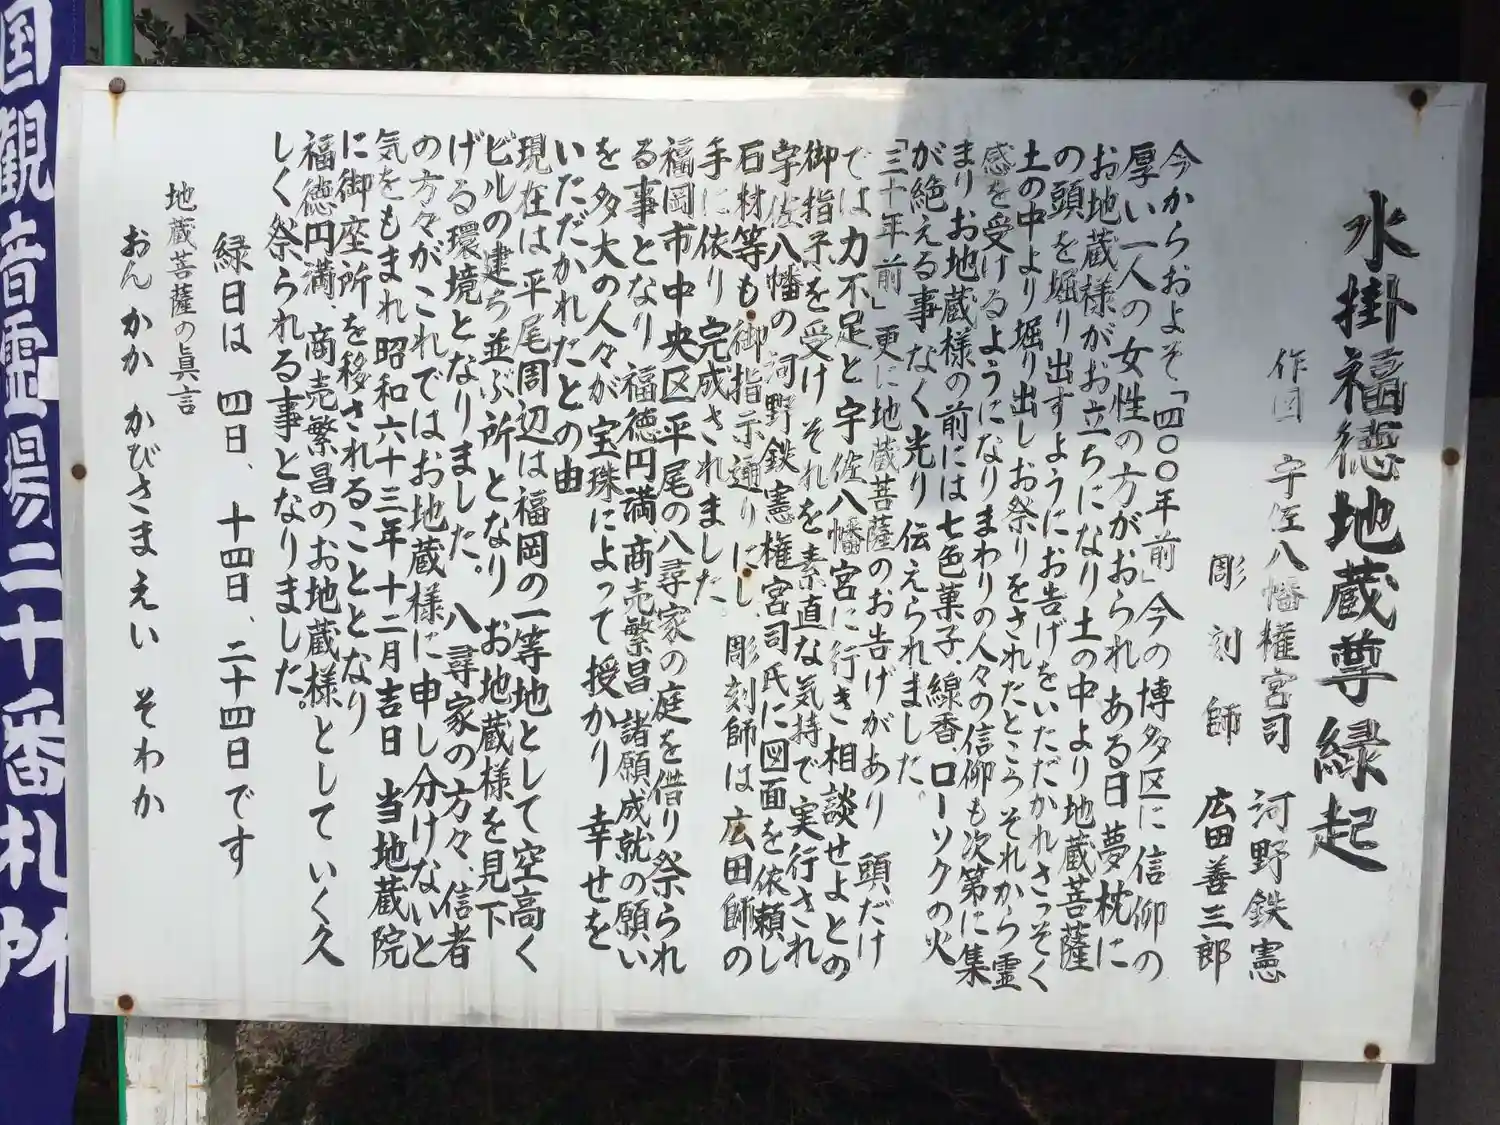 水掛福徳地蔵尊縁起
作図 宇佐八幡権宮司 河野鉄憲
彫刻師 広田善三郎
今からおよそ「四〇〇年前」今の博多区に信仰の
厚い一人の女性の方がおられある日夢枕に
お地蔵様がお立ちになり土の中より地蔵菩薩
の頭を堀り出すようにお告げをいただかれさっそく
土の中より堀り出しお祭りをされたところそれから霊
感を受けるようになりまわりの人々の信仰も次第に集
まりお地蔵様の前には七色菓子、線香、ローソクの火
が絶える事なく光り伝えられました。
「三十年前」更に地蔵菩薩のお告げがあり 頭だけ
では力不足と宇佐八幡宮に行き相談せよとの
御指示を受けそれを素直な気持で実行され
宇佐八幡の河野鉄憲権宮司氏に図面を依頼し
石材等も御指示通りにし、彫刻師は広田師の
手に依り 完成されました
福岡市中央区平尾の八尋家の庭を借り祭られ
る事となり 福徳円満 商売繁昌 諸願成就の願い
を多大の人々が宝珠によって授かり 幸せを
いただかれたとの由
現在は平尾周辺は福岡の一等地として空高く
ビルの建ち並ぶ所となり お地蔵様を見下
げる環境となりました。八尋家の方々、信者
の方々がこれではお地蔵様に申し分けないと
気をもまれ昭和六十三年十二月吉日 当地蔵院
に御座所を移されることとなり
福徳円満、商売繁昌のお地蔵様としていく久
しく祭られる事となりました。
縁日は 四日、十四日、二十四日です
地蔵菩薩の眞言
おん かか かびさまえい そわか
国観音霊場二十番札所